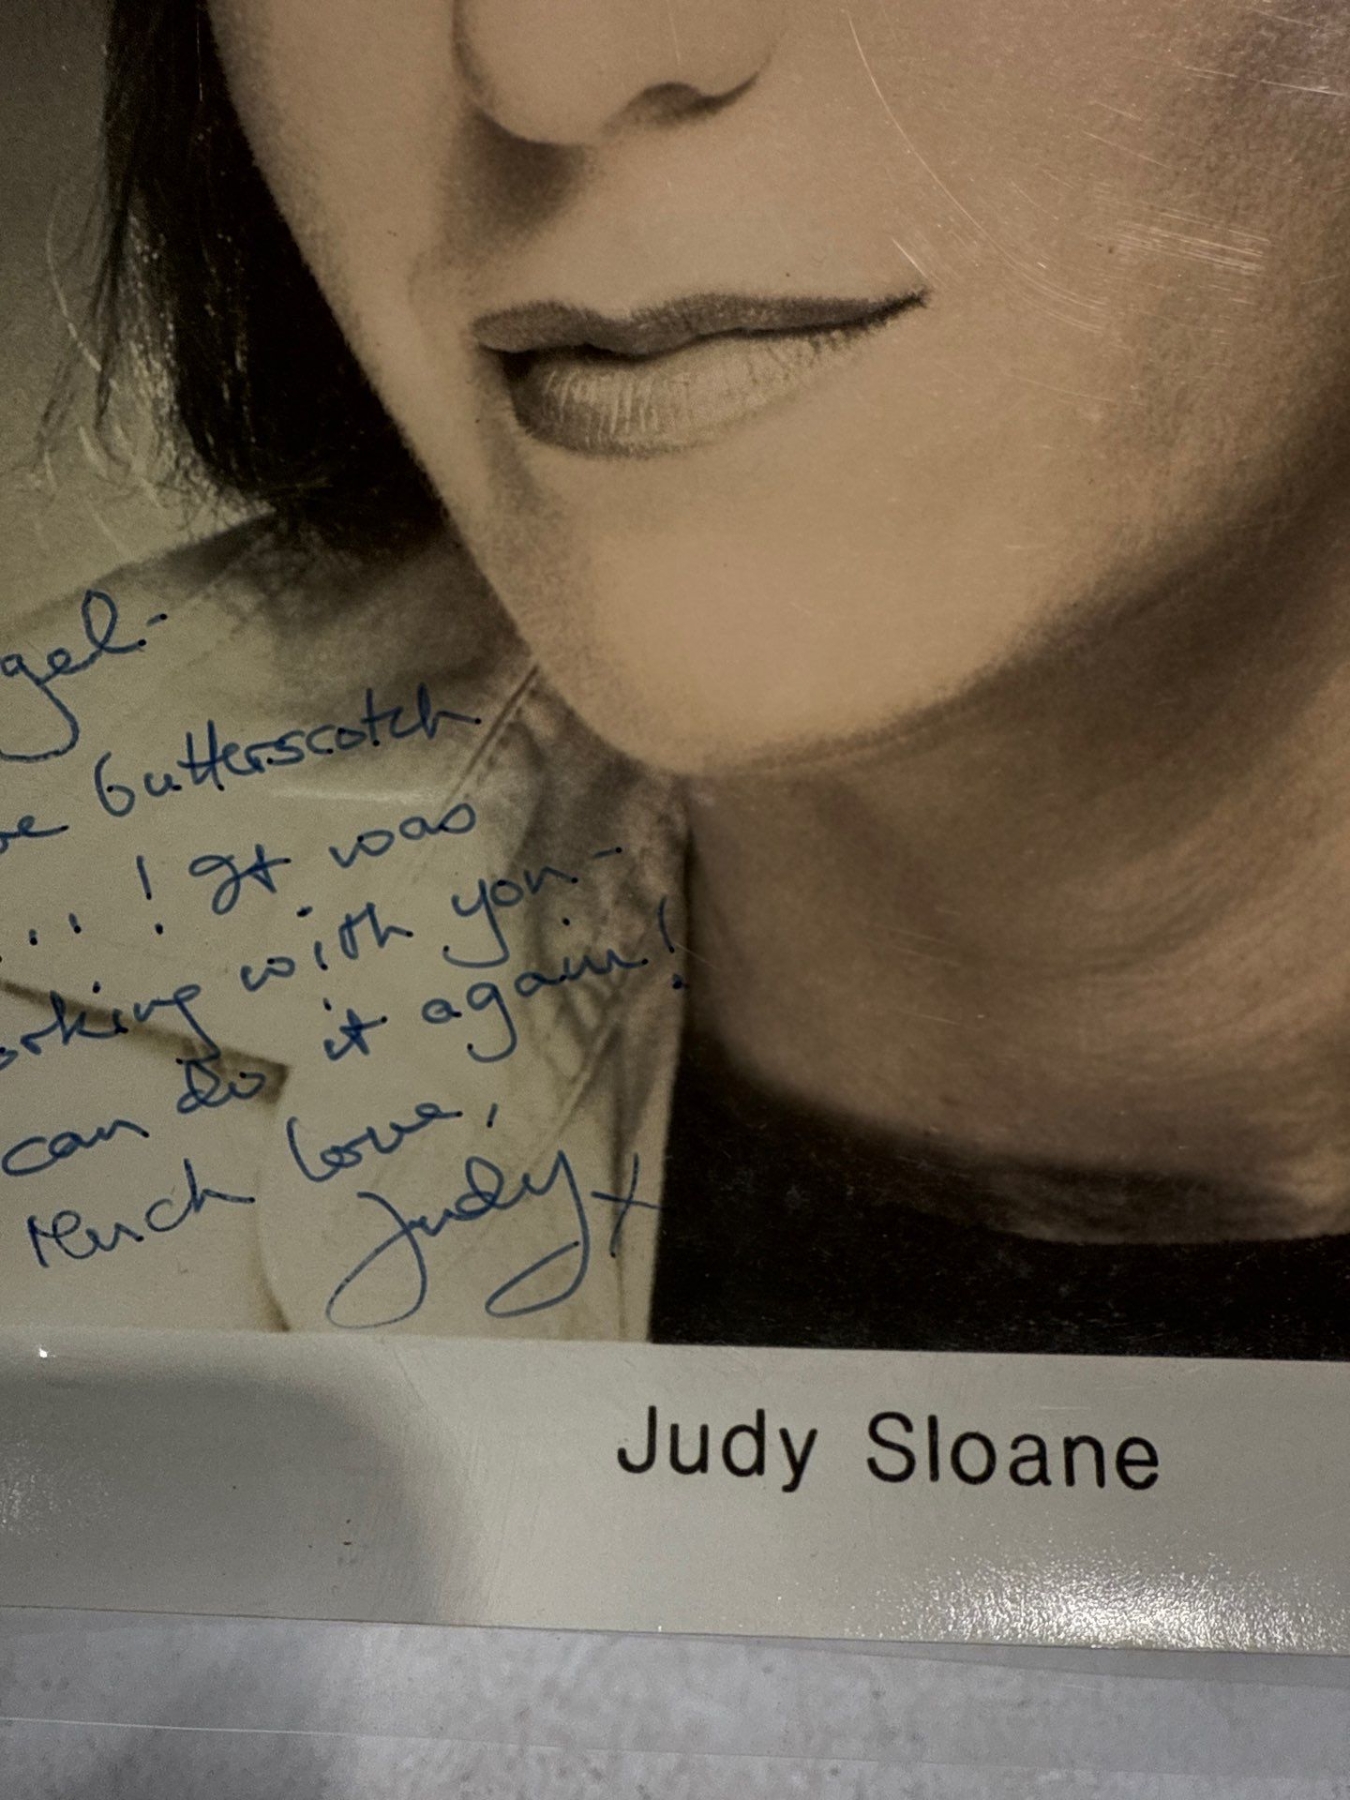 gel-
butterscotch
...! It was
with you-
can do it again!
Much love,
Judy x
Judy Sloane